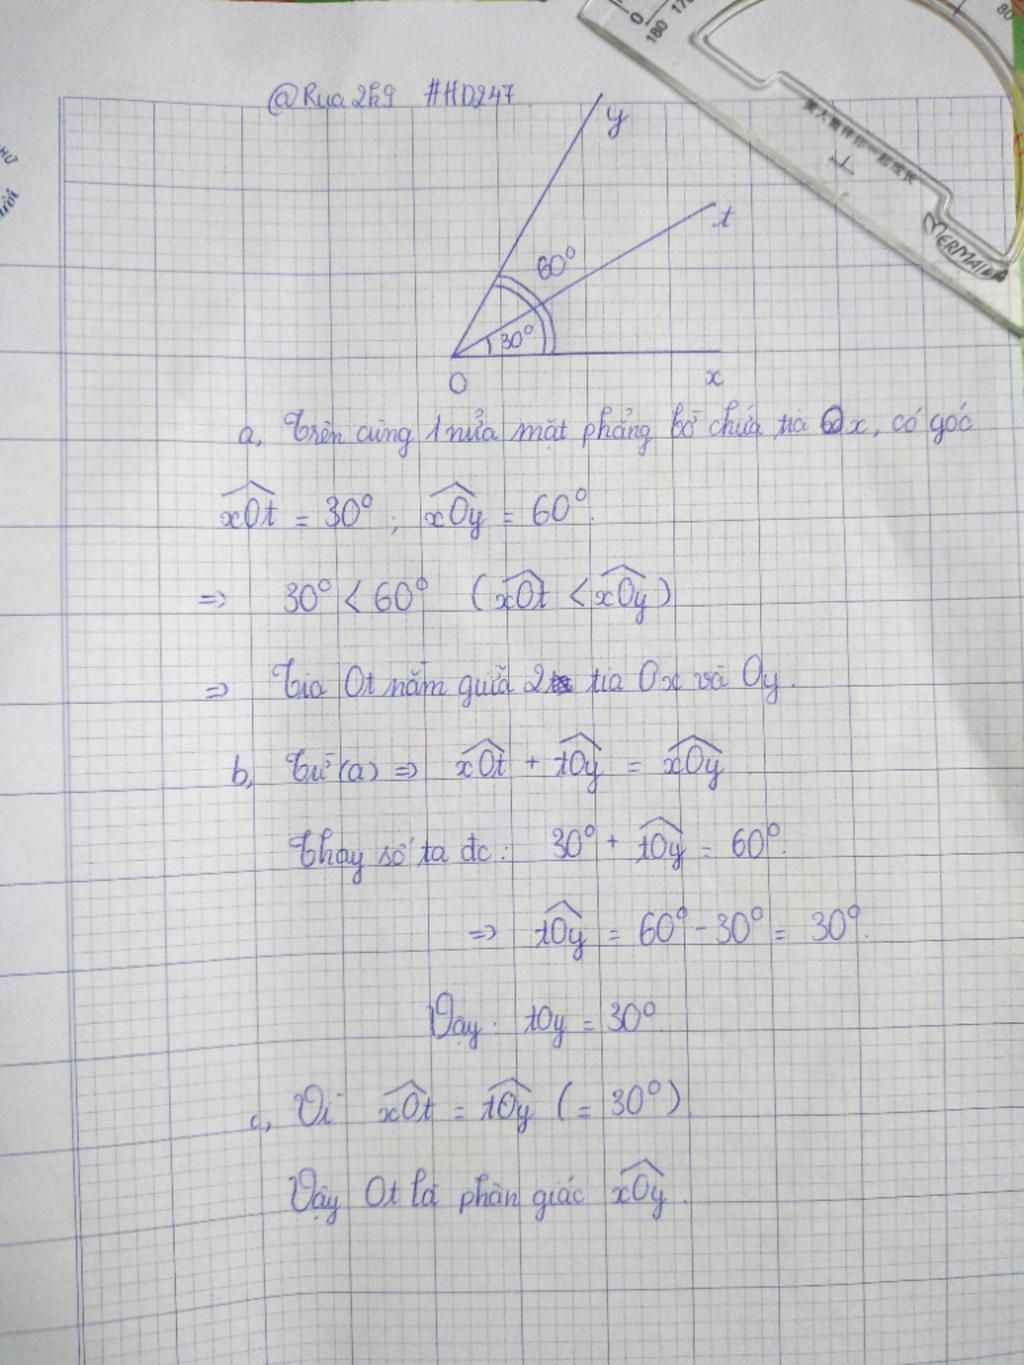 @Rụa2k9 #HD247
0
180
80
MERMAID
y
t
60°
30°
O
x
a, Trên cùng 1 nửa mặt phẳng bờ chứa tia Ox, có góc
xOt = 30° ; xOy = 60°.
=> 30° < 60° (xOt < xOy)
=> Tia Ot nằm giữa 2 tia Ox và Oy.
b, Từ (a) => xOt + tOy = xOy
Thay số ta đc: 30° + tOy = 60°.
=> tOy = 60° - 30° = 30°.
Vậy: tOy = 30°
c, Vì xOt = tOy (= 30°)
Vậy Ot là phân giác xOy.